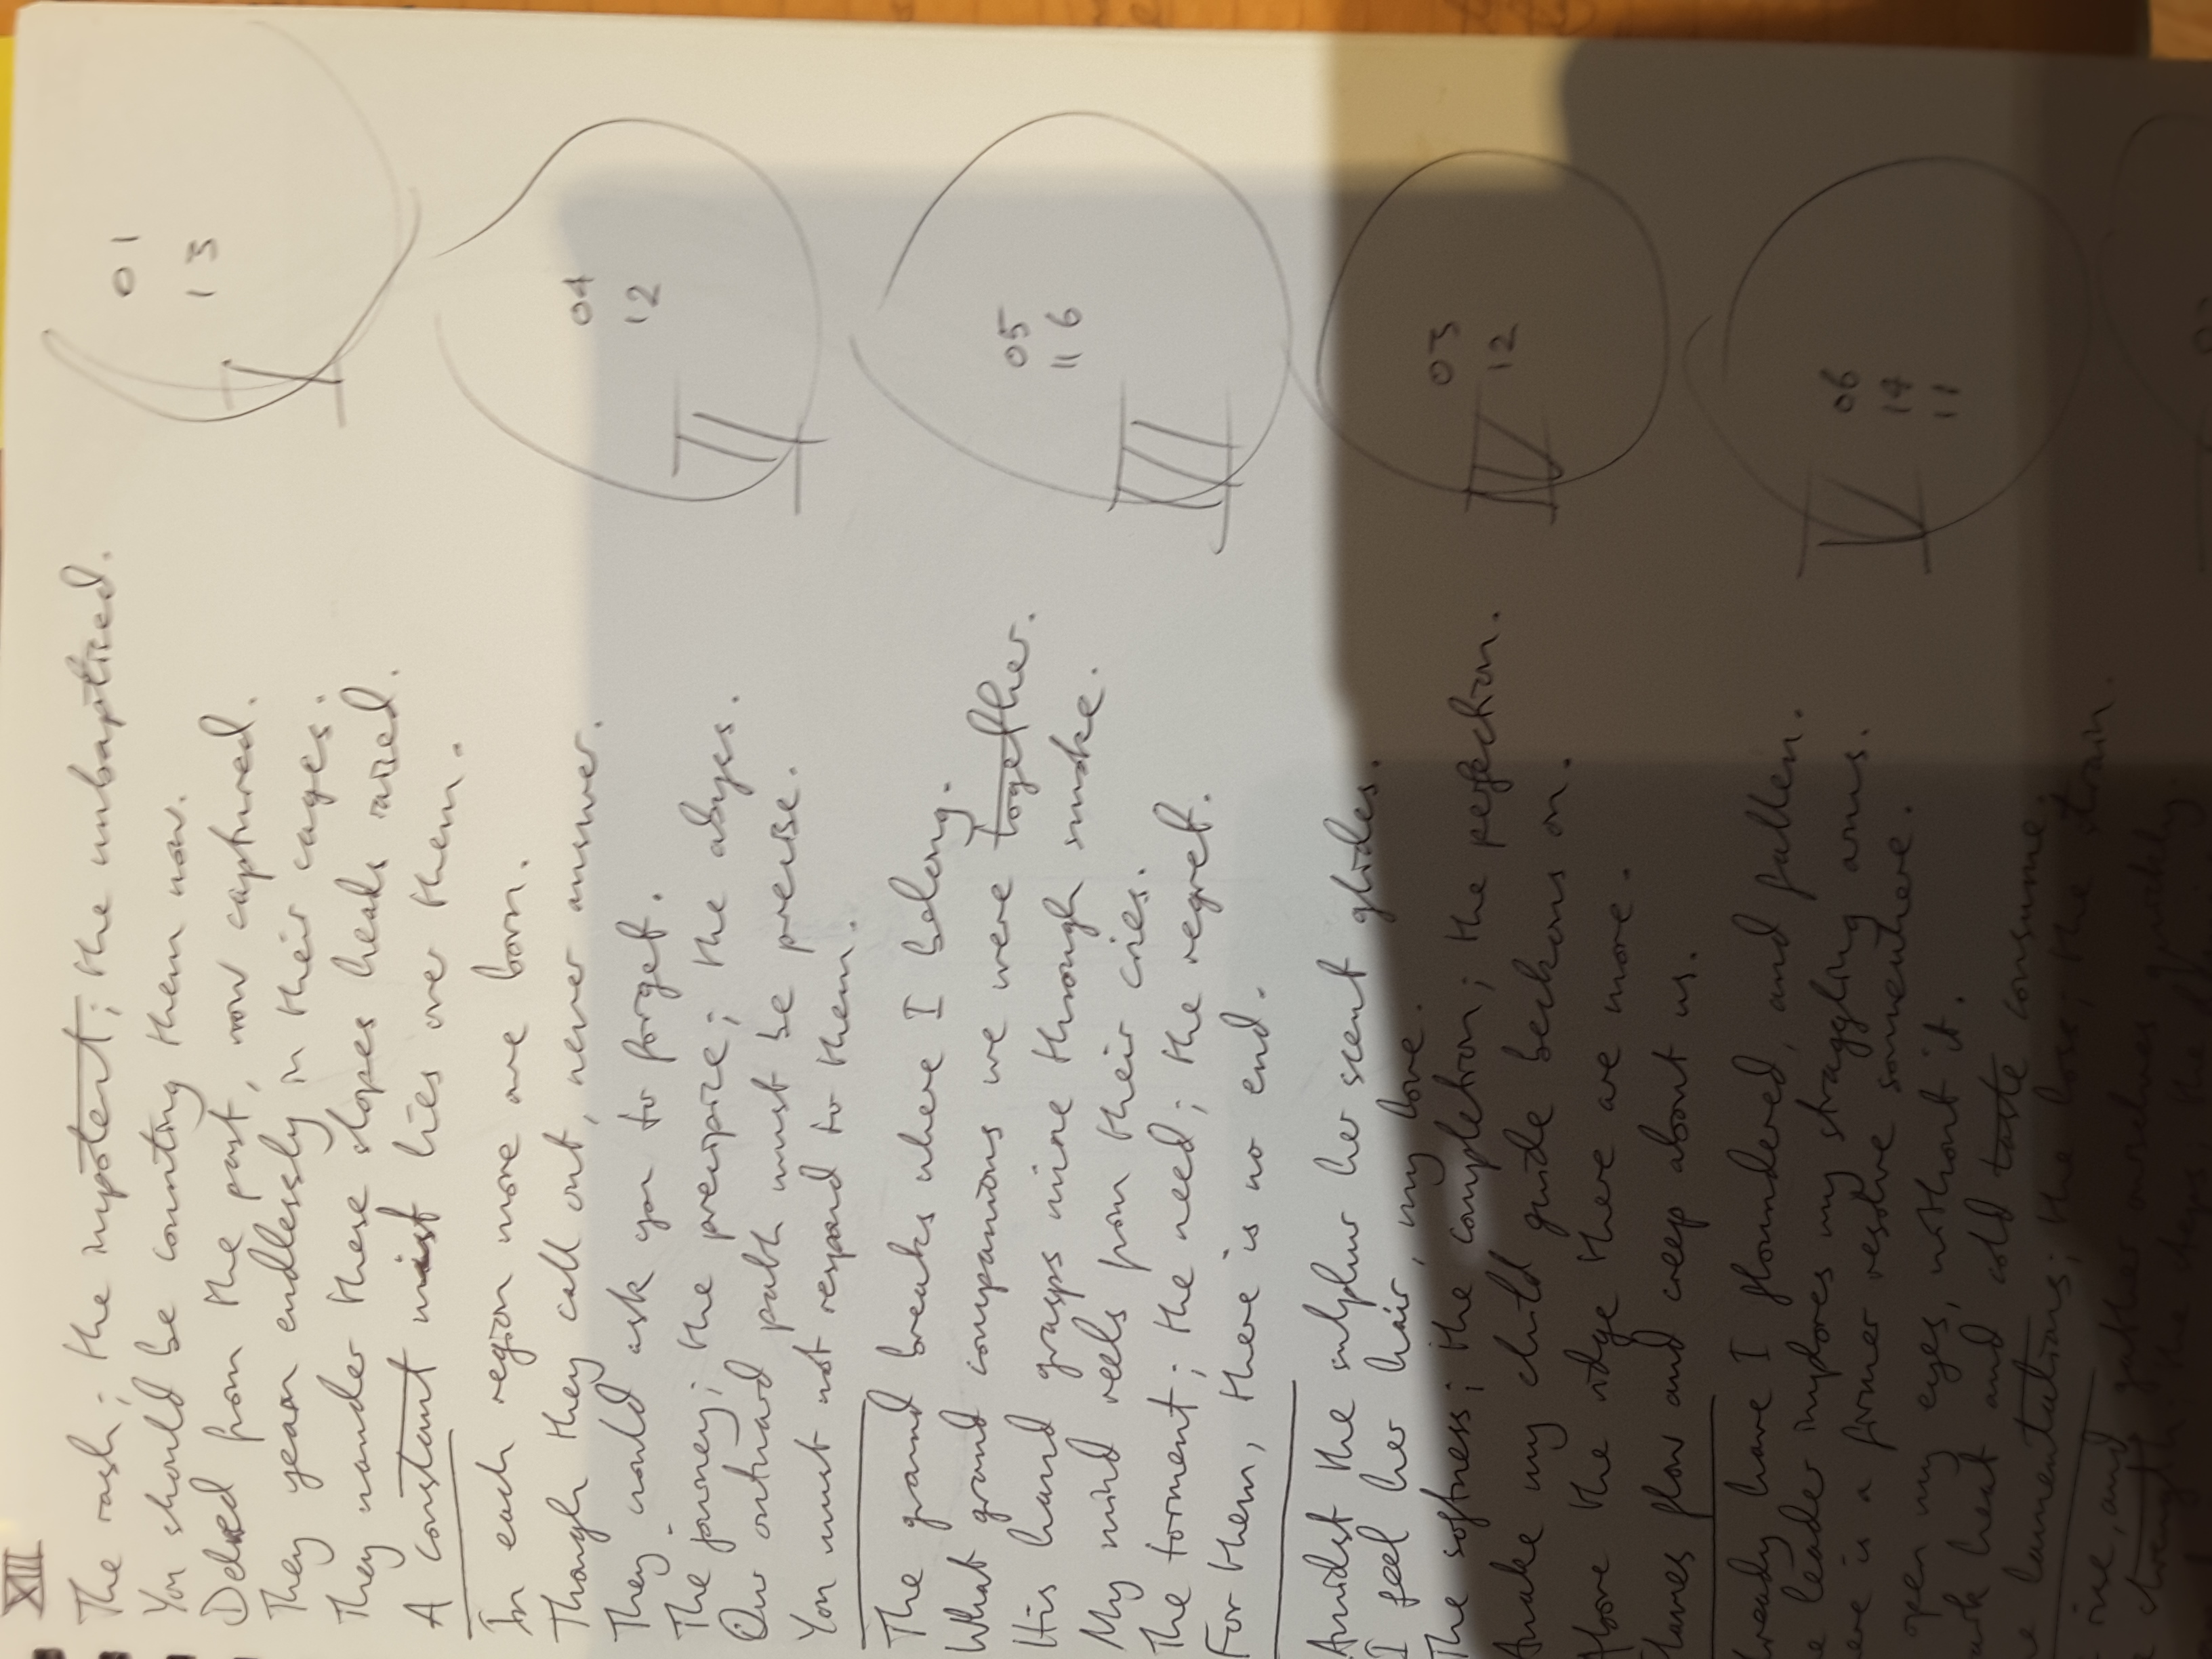 XIII
The rash; the impotent; the unbaptised.
You should be counting them now.
Delved from the past, now captured.
They yearn endlessly in their cages.
They wander these slopes heads raised.
A constant mist lies over them.
01
13
I
In each region more are born.
Though they call out, never answer.
They would ask you to forget.
The journey; the precipice; the abyss.
Our outward path must be precise.
You must not respond to them.
04
12
II
The ground breaks where I belong.
What grand companions we were together.
His hand grasps mine through smoke.
My mind reels from their cries.
The torment; the need; the regret.
For them, there is no end.
05
11 6
III
Amidst the sulphur her scent glides.
I feel her hair, my love.
The softness; the completion; the perfection.
Awake my child guide beckons on.
Above the ridge there are more.
flow and creep about us.
03
12
IV
have I floundered, and fallen.
leader implores my straggling arms.
is a firmer resolve somewhere.
open my eyes, without it.
heat and cold taste consume.
lamentations; the loss; the strain.
06
14
11
V
rise, and gather ourselves quickly.
strength; the steps, the